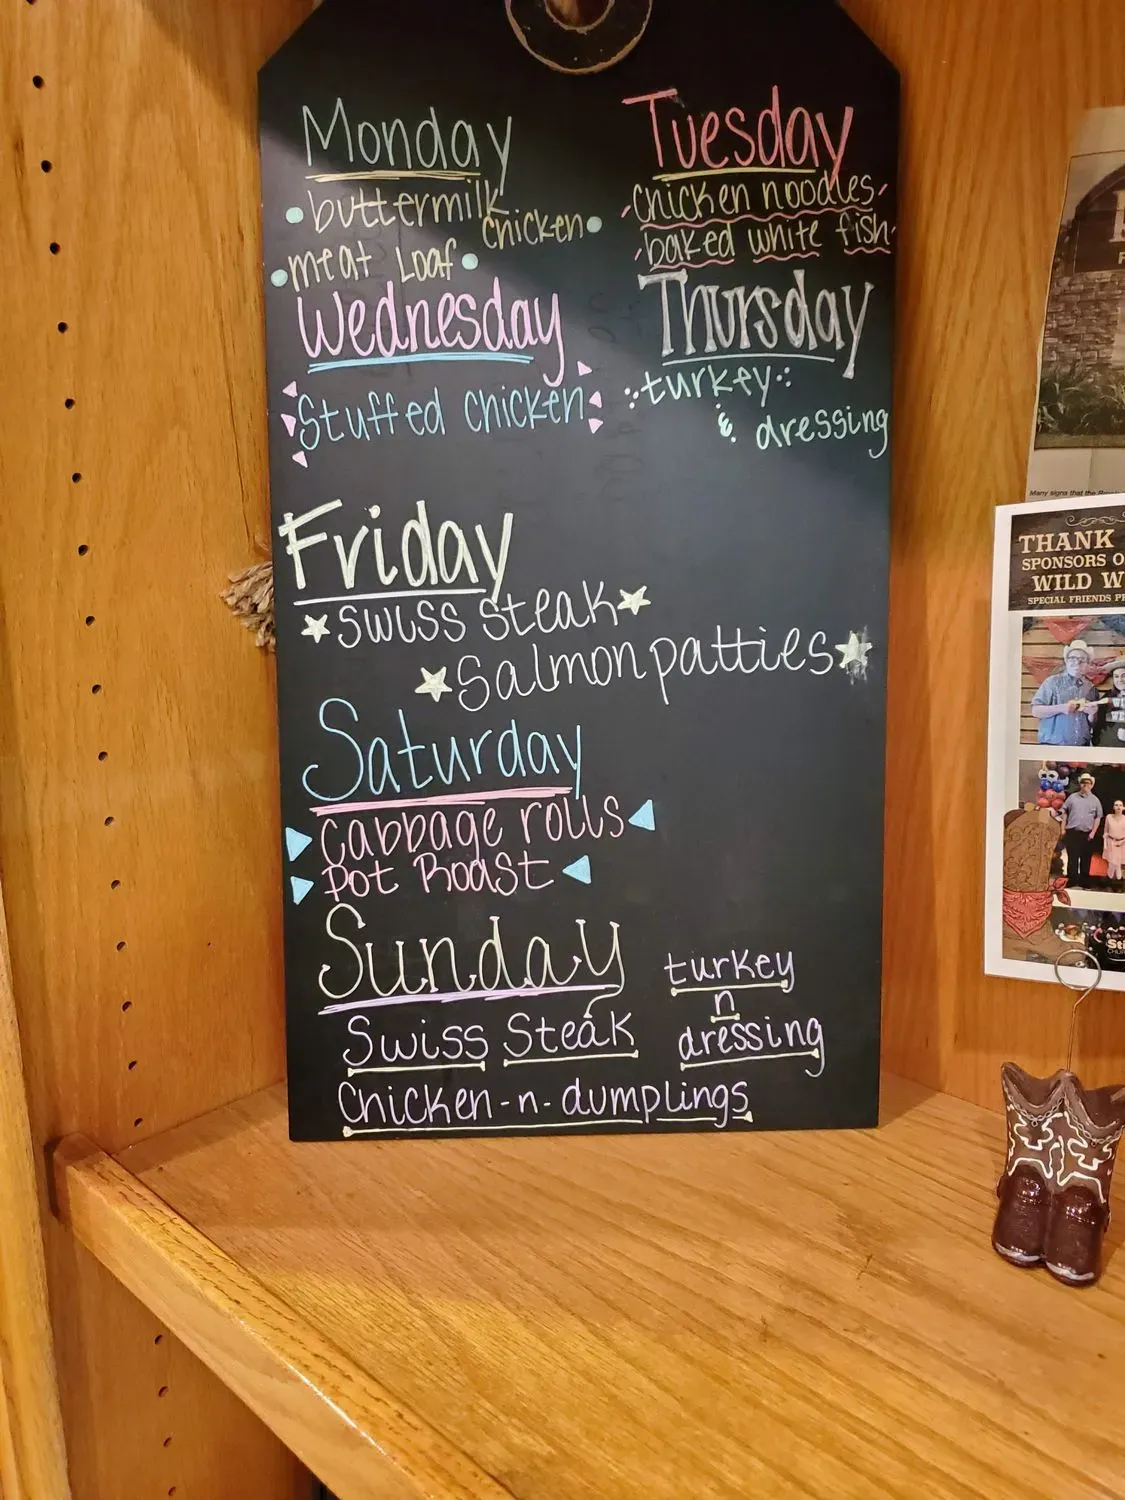 Monday
buttermilk
chicken
meat Loaf
Tuesday
chicken noodles
baked white fish
Wednesday
Stuffed chicken
Thursday
turkey
& dressing
Friday
swiss steak
Salmon patties
Saturday
cabbage rolls
Pot Roast
Sunday
Swiss Steak
turkey
n
dressing
Chicken-n-dumplings
Many signs that the
THANK
SPONSORS O
WILD W
SPECIAL FRIENDS PR